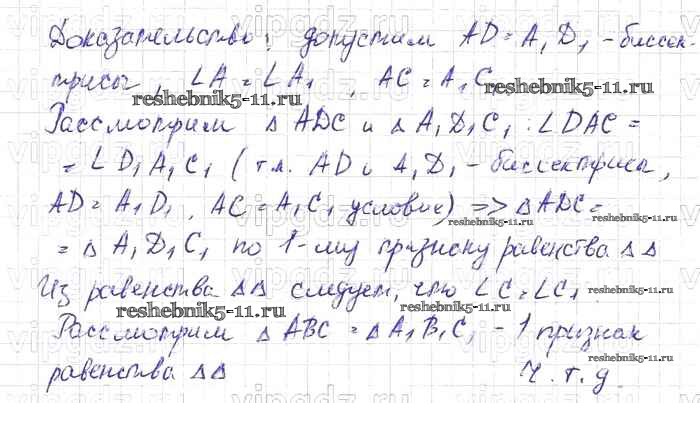 Доказательство: допустим AD = A₁D₁ – биссек-
трисы, ∠A = ∠A₁, AC = A₁C₁
reshebnik5-11.ru reshebnik5-11.ru
Рассмотрим △ ADC и △ A₁D₁C₁: ∠DAC =
= ∠D₁A₁C₁ (т.к. AD и A₁D₁ – биссектрисы,
AD = A₁D₁, AC = A₁C₁ условие) => △ADC =
reshebnik5-11.ru reshebnik5-11.ru
= △ A₁D₁C₁ по 1-му признаку равенства △△
reshebnik5-11.ru
Из равенства △△ следует, что ∠C = ∠C₁
reshebnik5-11.ru
reshebnik5-11.ru reshebnik5-11.ru
Рассмотрим △ ABC = △ A₁B₁C₁ – 1 признак
reshebnik5-11.ru
равенства △△ Ч.т.д.
vipgdz.ru vipgdz.ru vipgdz.ru